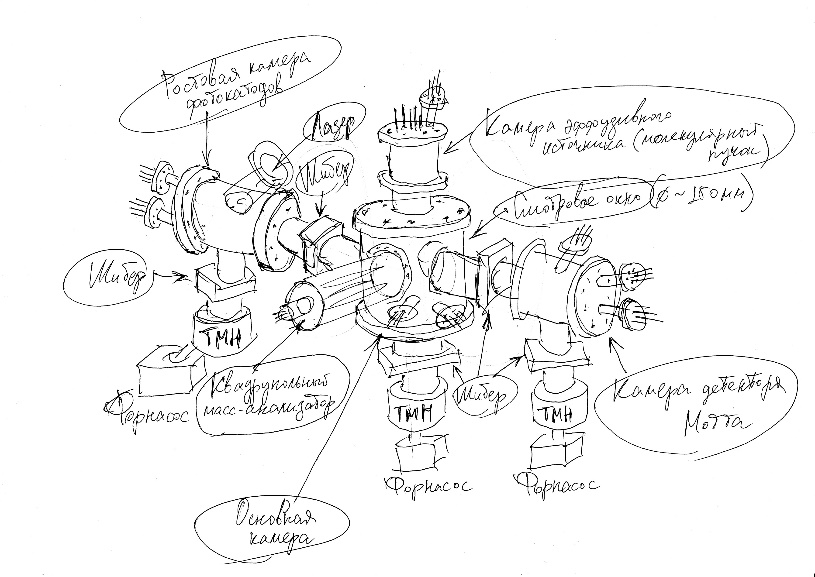 Ростовая камера
фотокатодов
Лазер
Шибер
Камера эффузивного
источника (молекулярный
пучок)
Смотровое окно (∅ ~ 150 мм)
Шибер
ТМН
Форнасос
Квадрупольный
масс-анализатор
Шибер
ТМН
Форнасос
ТМН
Форнасос
Камера детектора
Мотта
Основная
камера